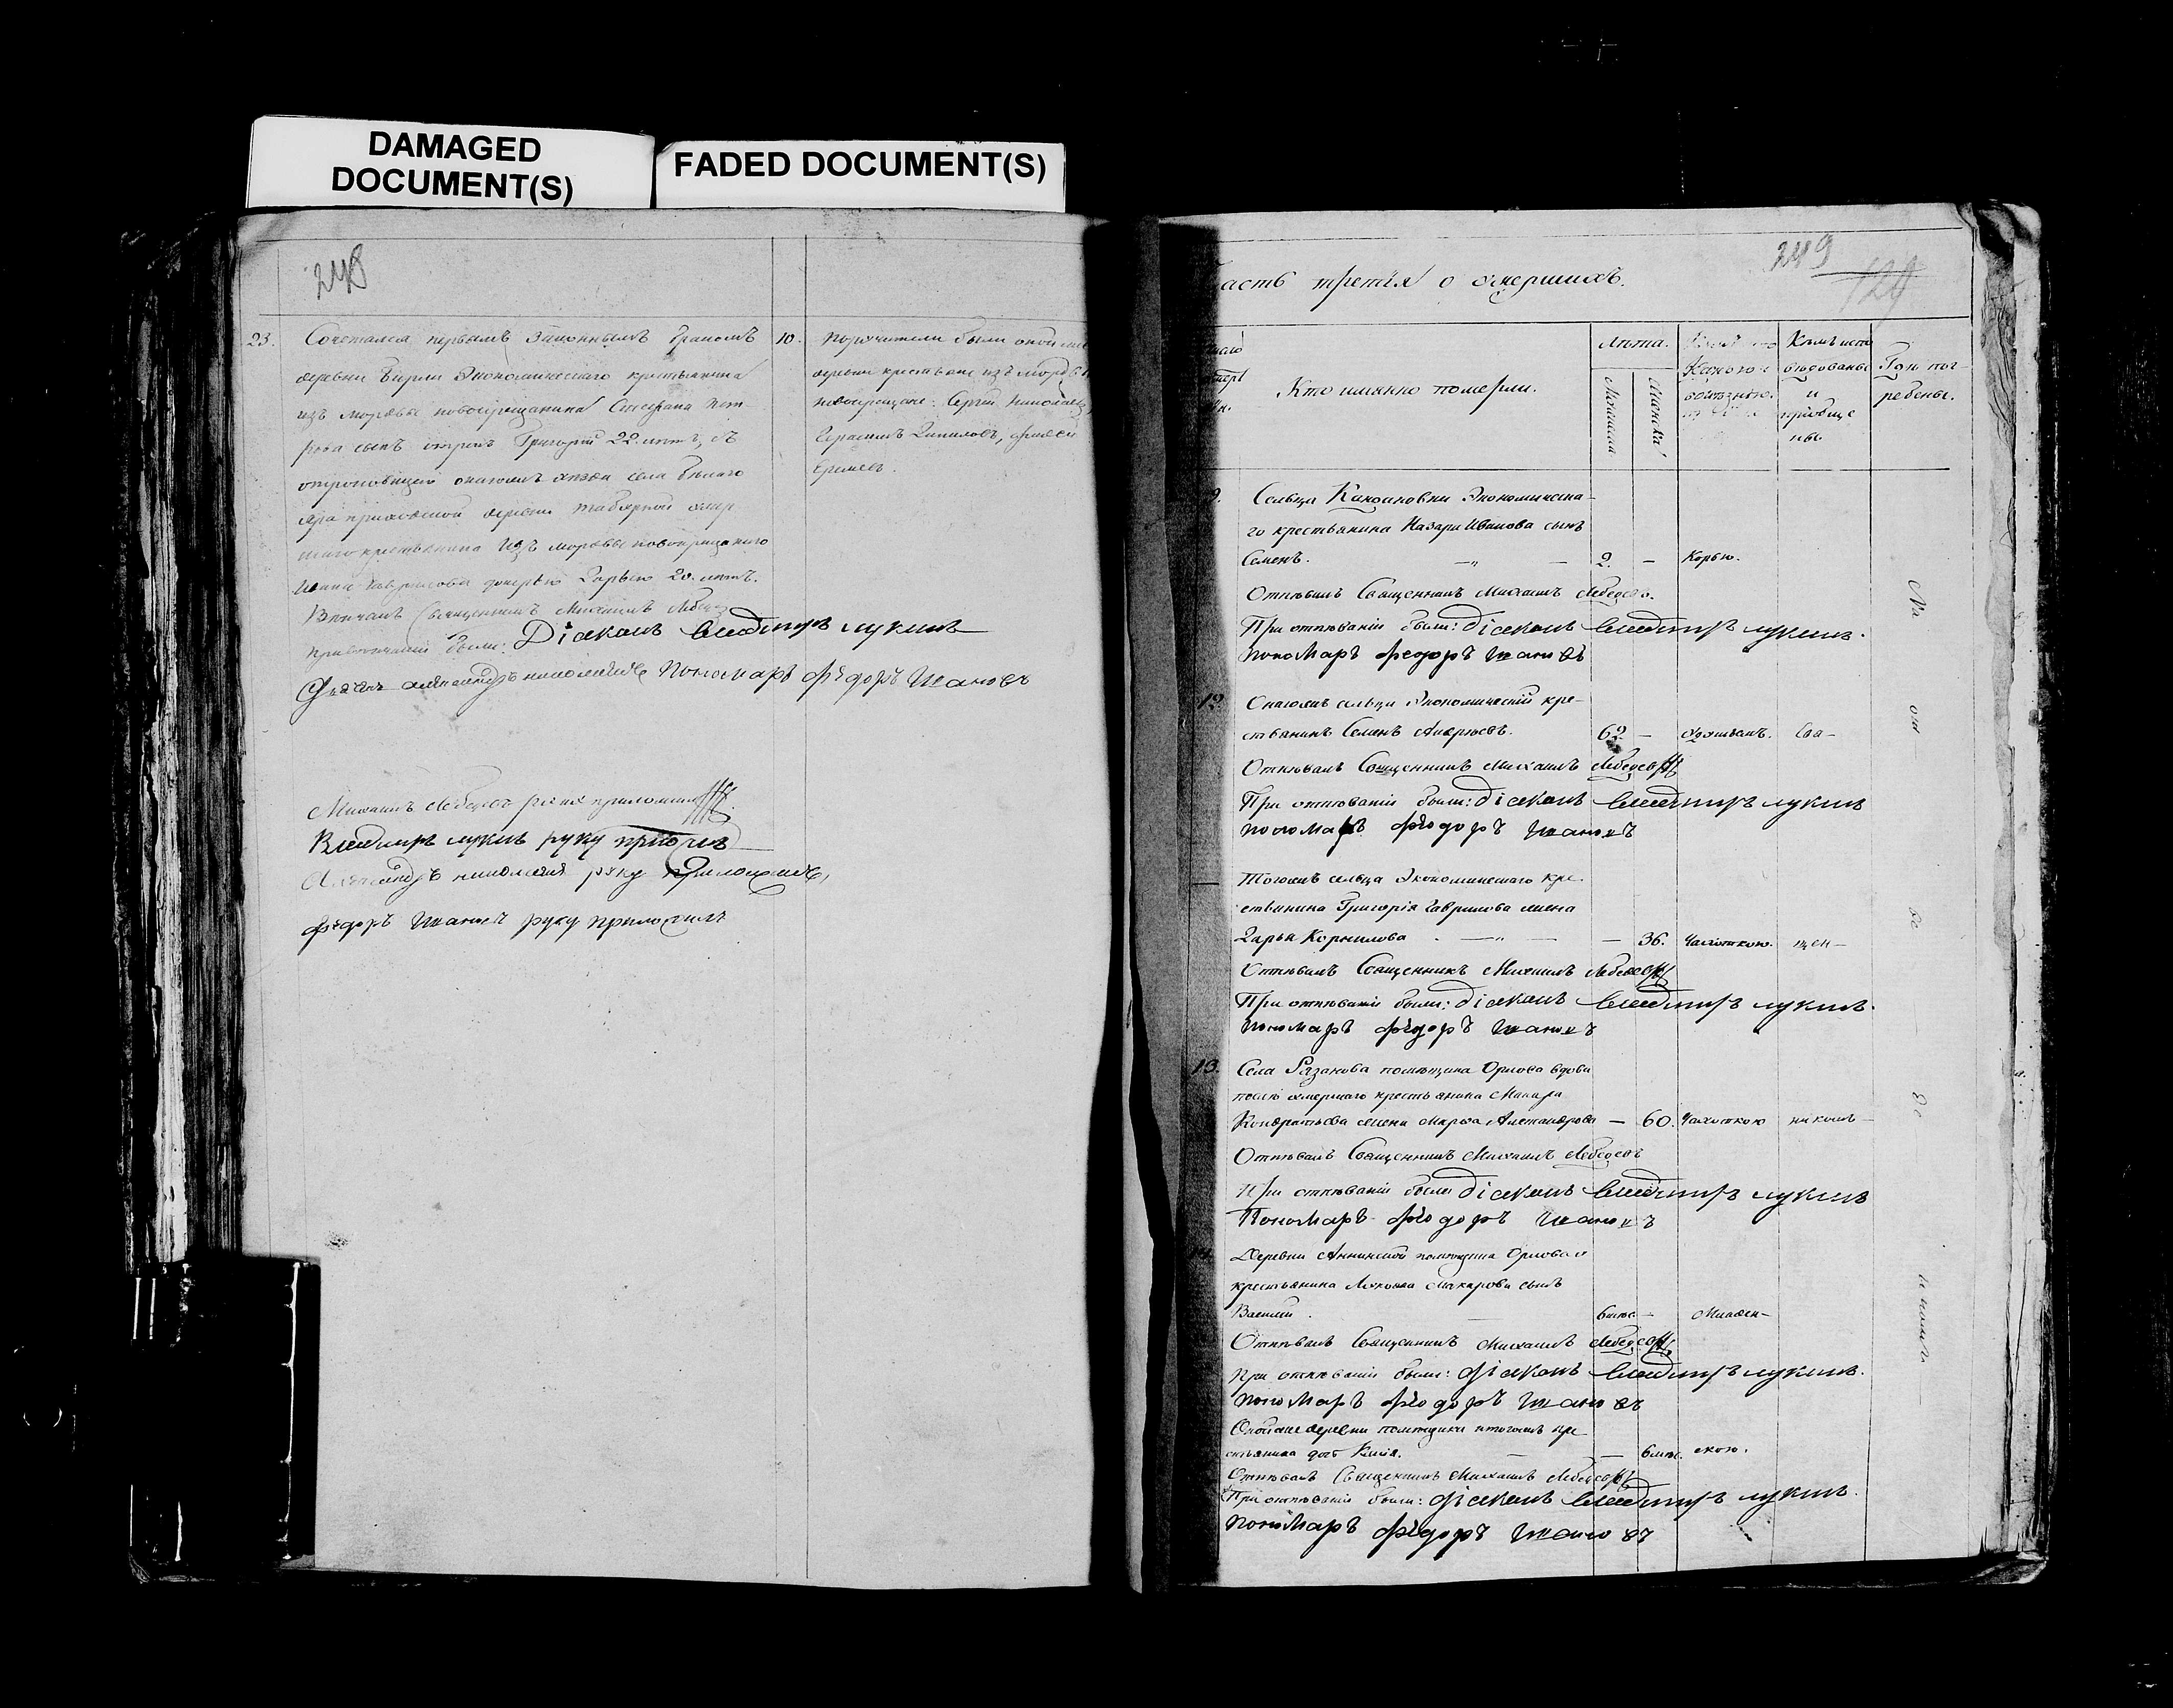 DAMAGED
DOCUMENT(S)
FADED DOCUMENT(S)
248
23. Сочетался первымъ законнымъ бракомъ
деревни Бирли Экономическаго крестьянина
изъ мордвы новокрещанина Стефана Пет
рова сынъ отрокъ Григорій 22. летъ, съ
села Белаго
яра приходской деревни
крестьянина изъ мордвы новокрещенаго
Ивана дочерью Дарьею 20. летъ.
Венчалъ Священникъ Михаилъ Лебедевъ
были: Діаконъ Владимиръ лукинъ
Пономарь Фёдоръ Ивановъ
10. Поручители были оной же
деревни крестьяне изъ мордвы
новокрещане: Сергей Николаевъ
Герасимъ Даниловъ,
Еремеевъ.
Михаилъ Лебедевъ руку приложилъ
Владимиръ лукинъ руку приложилъ
Александръ руку Приложилъ
Фёдоръ Ивановъ руку приложилъ
249
129
асть третія о умершихъ.
Кто имянно померли.
Лѣта.
Мужеска
Женска
Какою
болѣзнію.
Кемъ испо
ведованы
и
приобще
ны.
Где пог-
ребены.
Сельца Кандаковки Экономическа-
го крестьянина Назара Иванова сынъ
Семенъ. 2. — Корью.
Отпевалъ Священникъ Михаилъ Лебедевъ.
При отпеваніи были: діаконъ Владимиръ лукинъ.
пономарь Федоръ Ивановъ
12. Онагожъ сельца Экономическій кре-
стьянинъ Семенъ Андреевъ. 62 — Удушьемъ. Свя-
Отпевалъ Священникъ Михаилъ Лебедевъ
При отпеваніи были: діаконъ Владимиръ лукинъ
пономарь Фёдоръ Ивановъ
Тогожъ сельца Экономическаго кре-
стьянина Григорія Гаврилова жена
Дарья Корнилова — 36. Чахоткою. щен-
Отпевалъ Священникъ Михаилъ Лебедевъ
При отпеваніи были: діаконъ Владимиръ лукинъ.
пономарь Фёдоръ Ивановъ
13. Села Рязанова помещика Орлова вдова
после умершаго крестьянина Макара
Кондратьева жена Марѳа Александрова — 60. Чахоткою никомъ
Отпевалъ Священникъ Михаилъ Лебедевъ
При отпеваніи были діаконъ Владимиръ лукинъ
Пономарь Фёдоръ Ивановъ
Деревни Аннинской помещика Орлова
крестьянина Макарова сынъ
Василій. 6 мес. — Младен-
Отпевалъ Священникъ Михаилъ Лебедевъ
При отпеваніи были: діаконъ Владимиръ лукинъ.
пономарь Фёдоръ Ивановъ
Онойже деревни помещика кре
стьянина дочь — 6 мес. скою.
Отпевалъ Священникъ Михаилъ Лебедевъ
При отпеваніи были: діаконъ Владимиръ лукинъ.
пономарь Фёдоръ Ивановъ